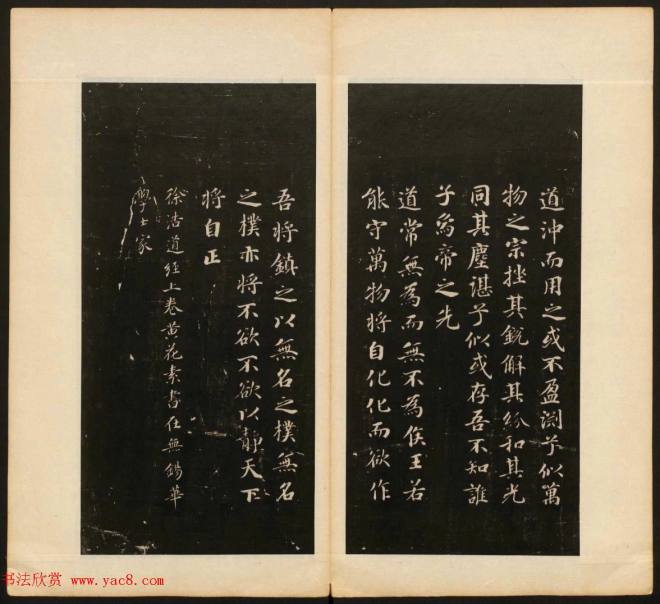 道沖而用之或不盈渊乎似萬
物之宗挫其銳解其紛和其光
同其塵湛乎似或存吾不知誰
子為帝之先
道常無為而無不為侯王若
能守萬物將自化化而欲作
吾將鎮之以無名之樸無名
之樸亦將不欲不欲以靜天下
將自正
徐浩道經上卷黄花素書在無錫華
學士家
书法欣赏 www.yac8.com